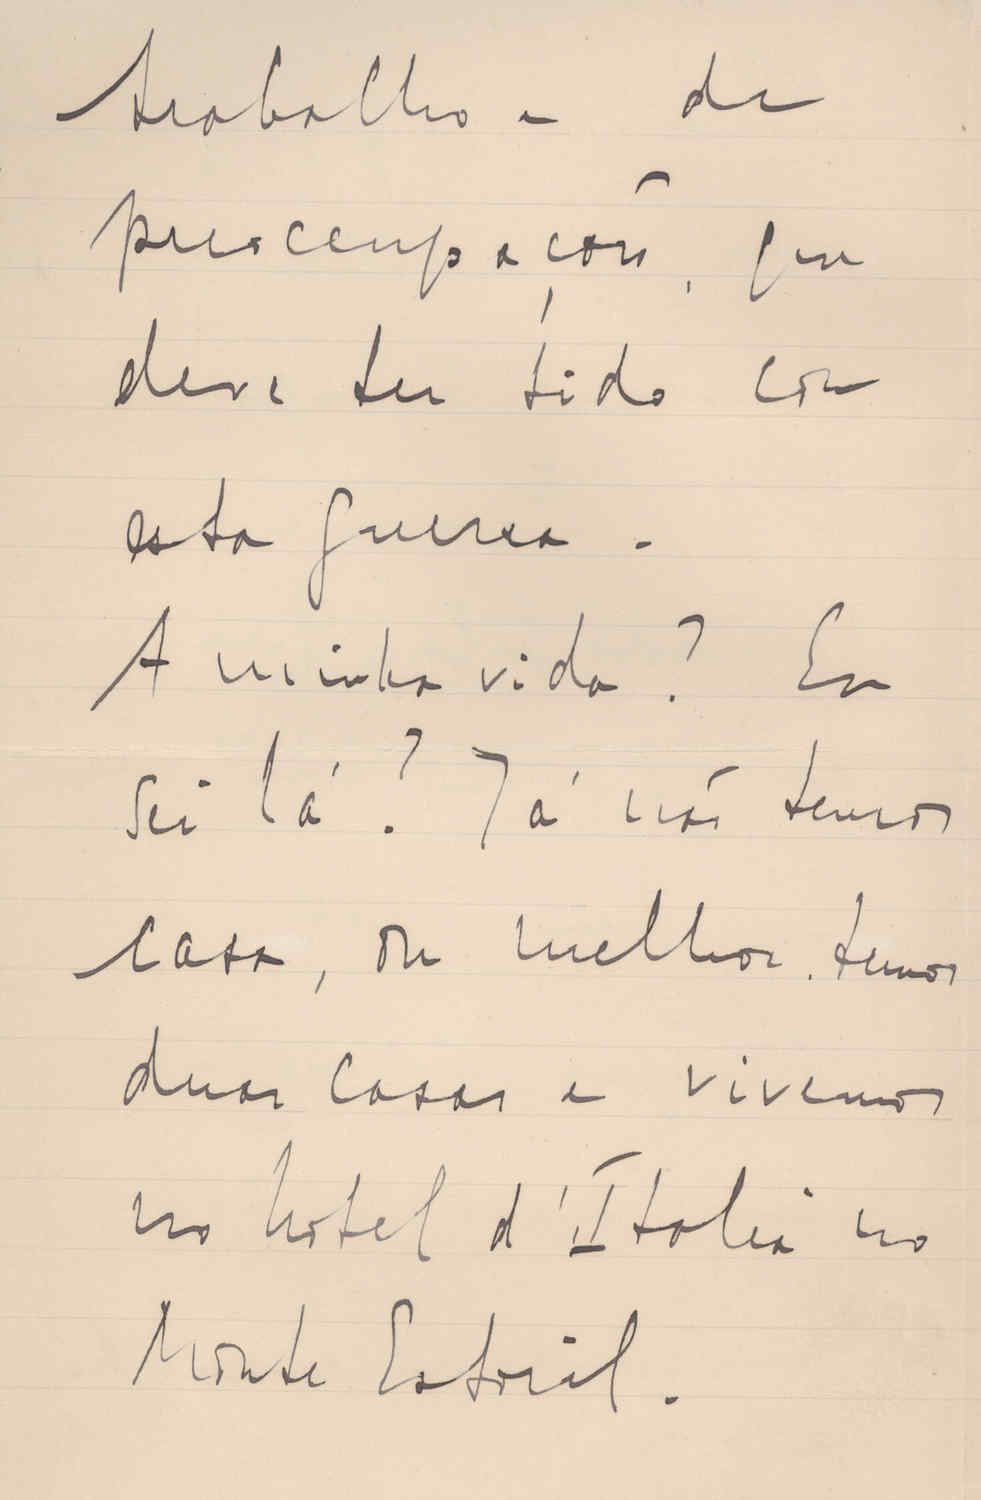 trabalho e de
preocupação, que
deve ter tido com
esta guerra.
A minha vida? Eu
sei lá? Já nós temos
casa, ou melhor, temos
duas casas e vivemos
no hotel d'Itália no
Monte Estoril.